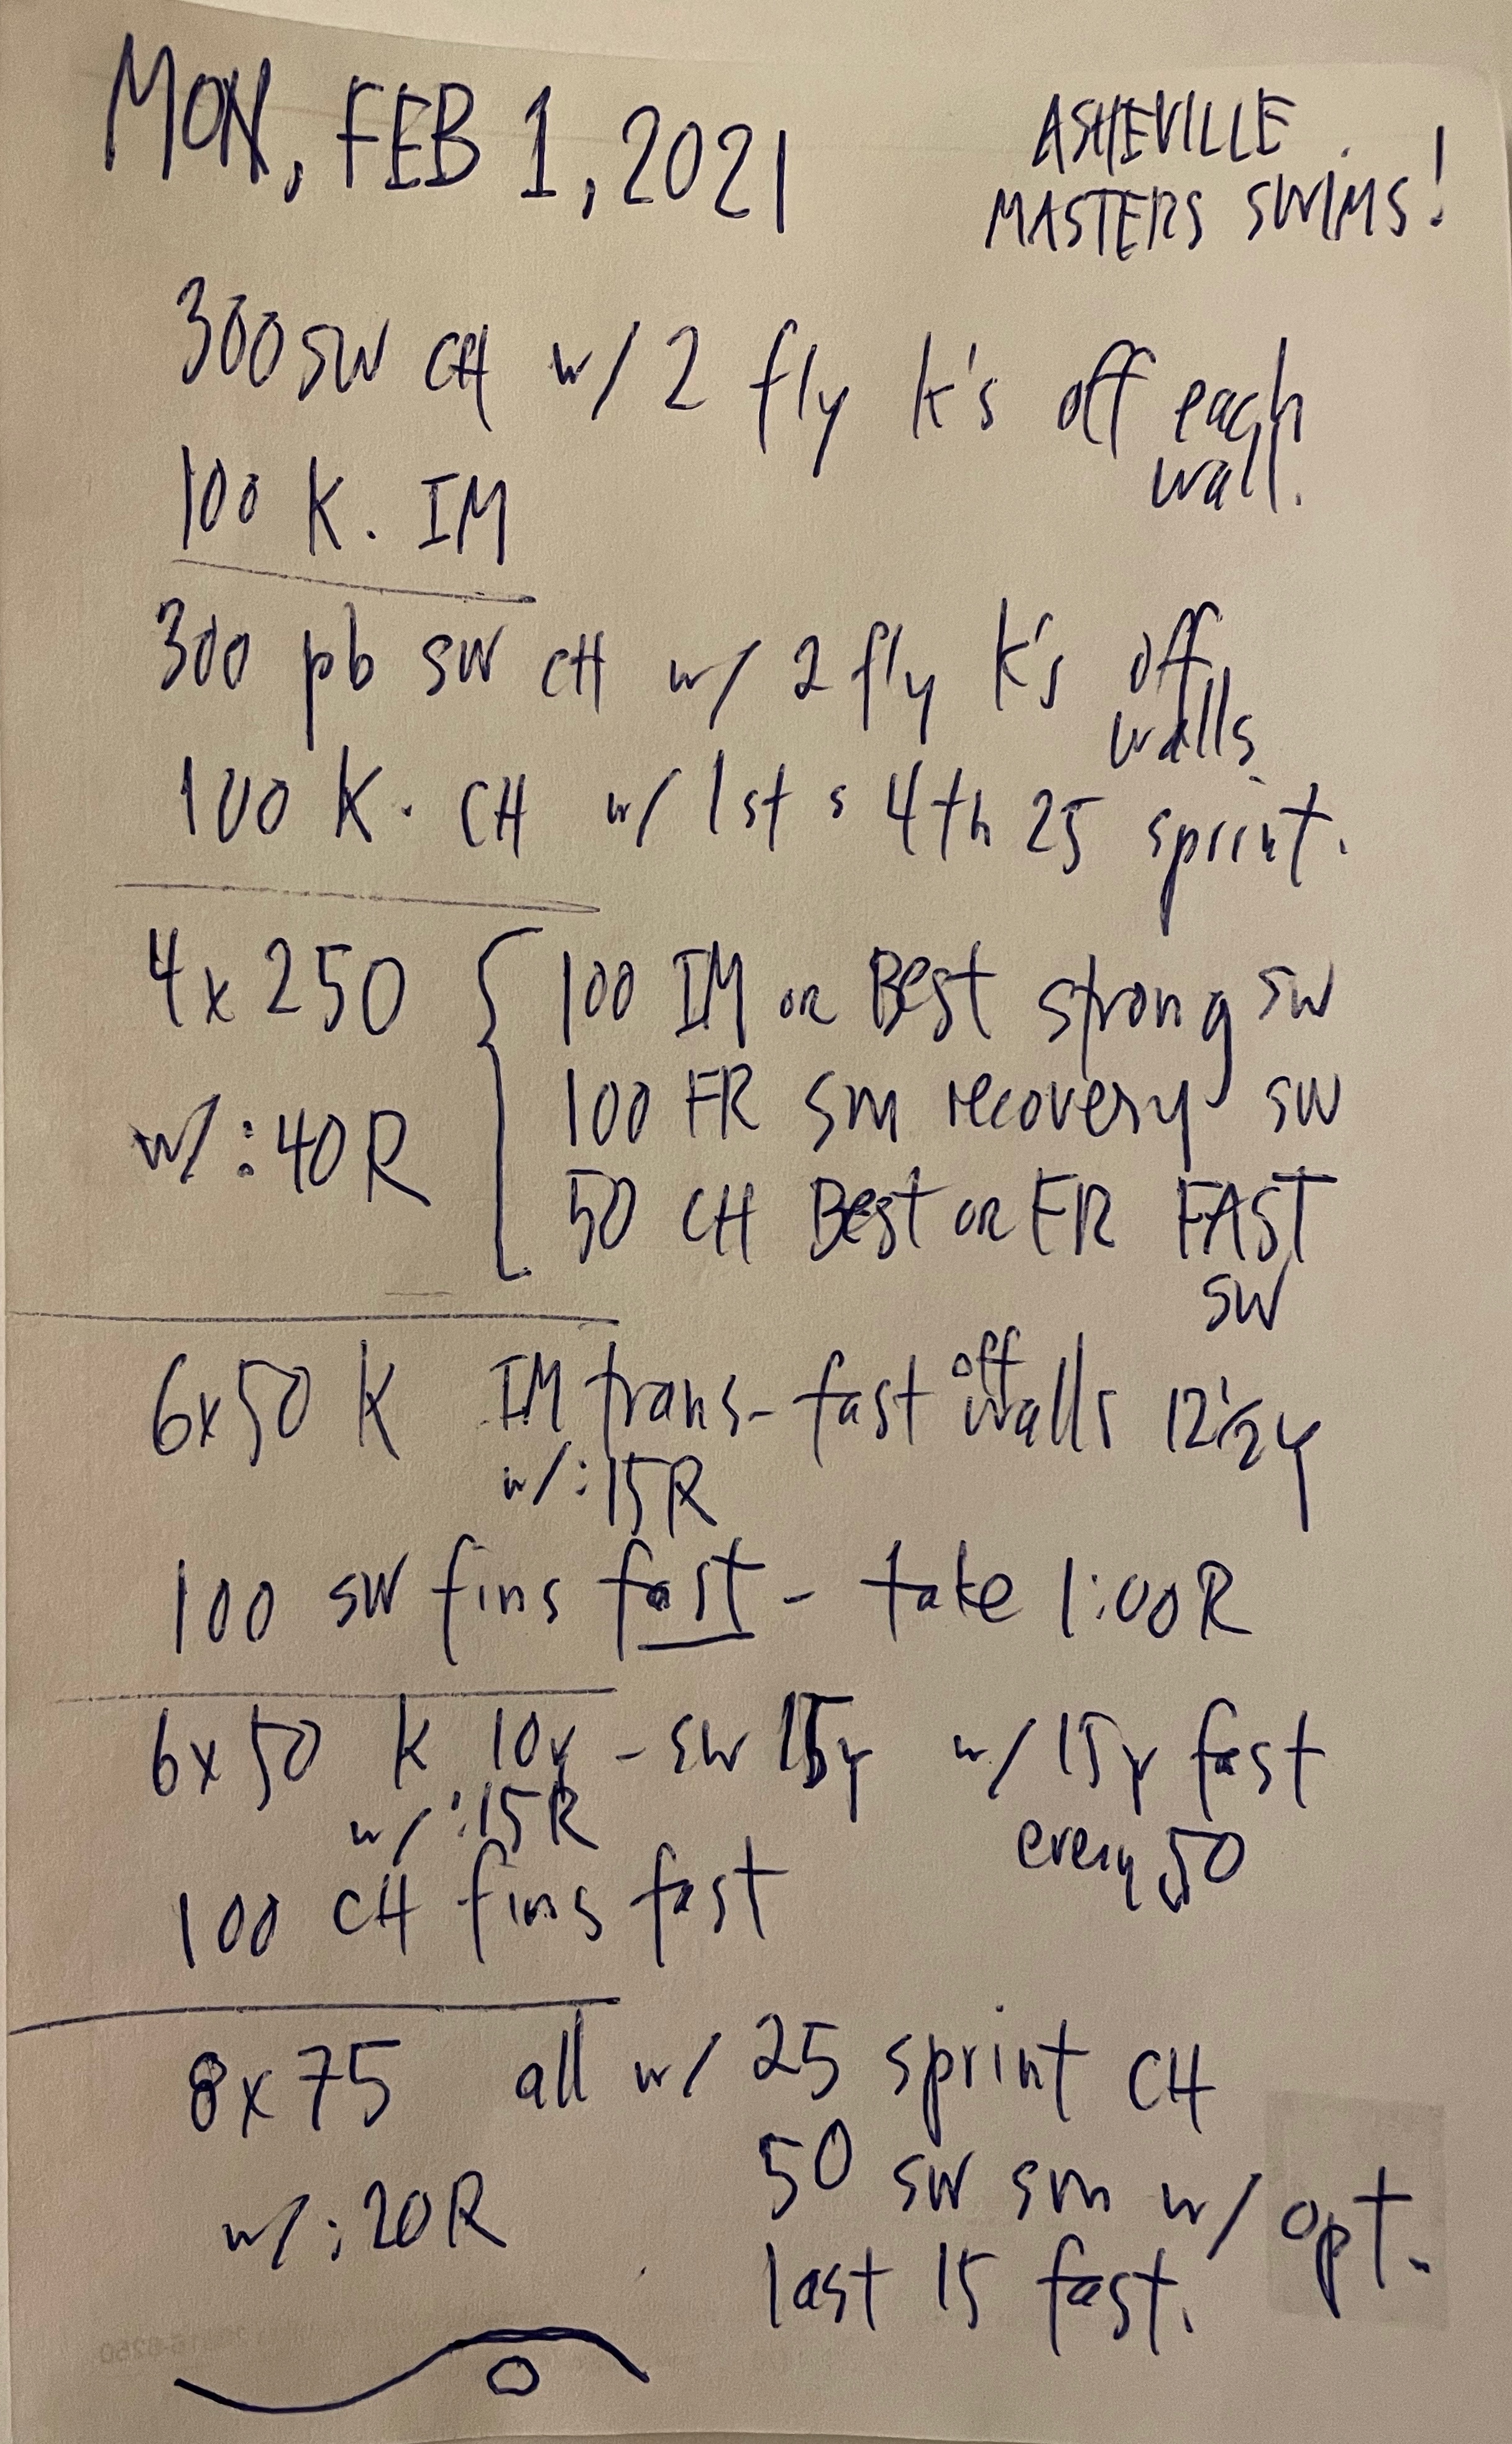 MON, FEB 1, 2021
ASHEVILLE
MASTERS SWIMS!
300 SW CH w/ 2 fly k's off each
wall.
100 K. IM
300 pb SW CH w/ 2 fly K's off
walls
100 K. CH w/ 1st & 4th 25 sprint.
4x250 { 100 IM or Best strong SW
w/:40R 100 FR sm recovery SW
50 CH Best or FR FAST
SW
6x50 K IM trans- fast off walls 12 1/2 y
w/:15R
100 SW fins fast - take 1:00R
6x50 K 10y - SW 15y w/ 15y fast
w/:15R every 50
100 CH fins fast
8x75 all w/ 25 sprint CH
50 SW sm w/ opt.
w/:20R
last 15 fast.